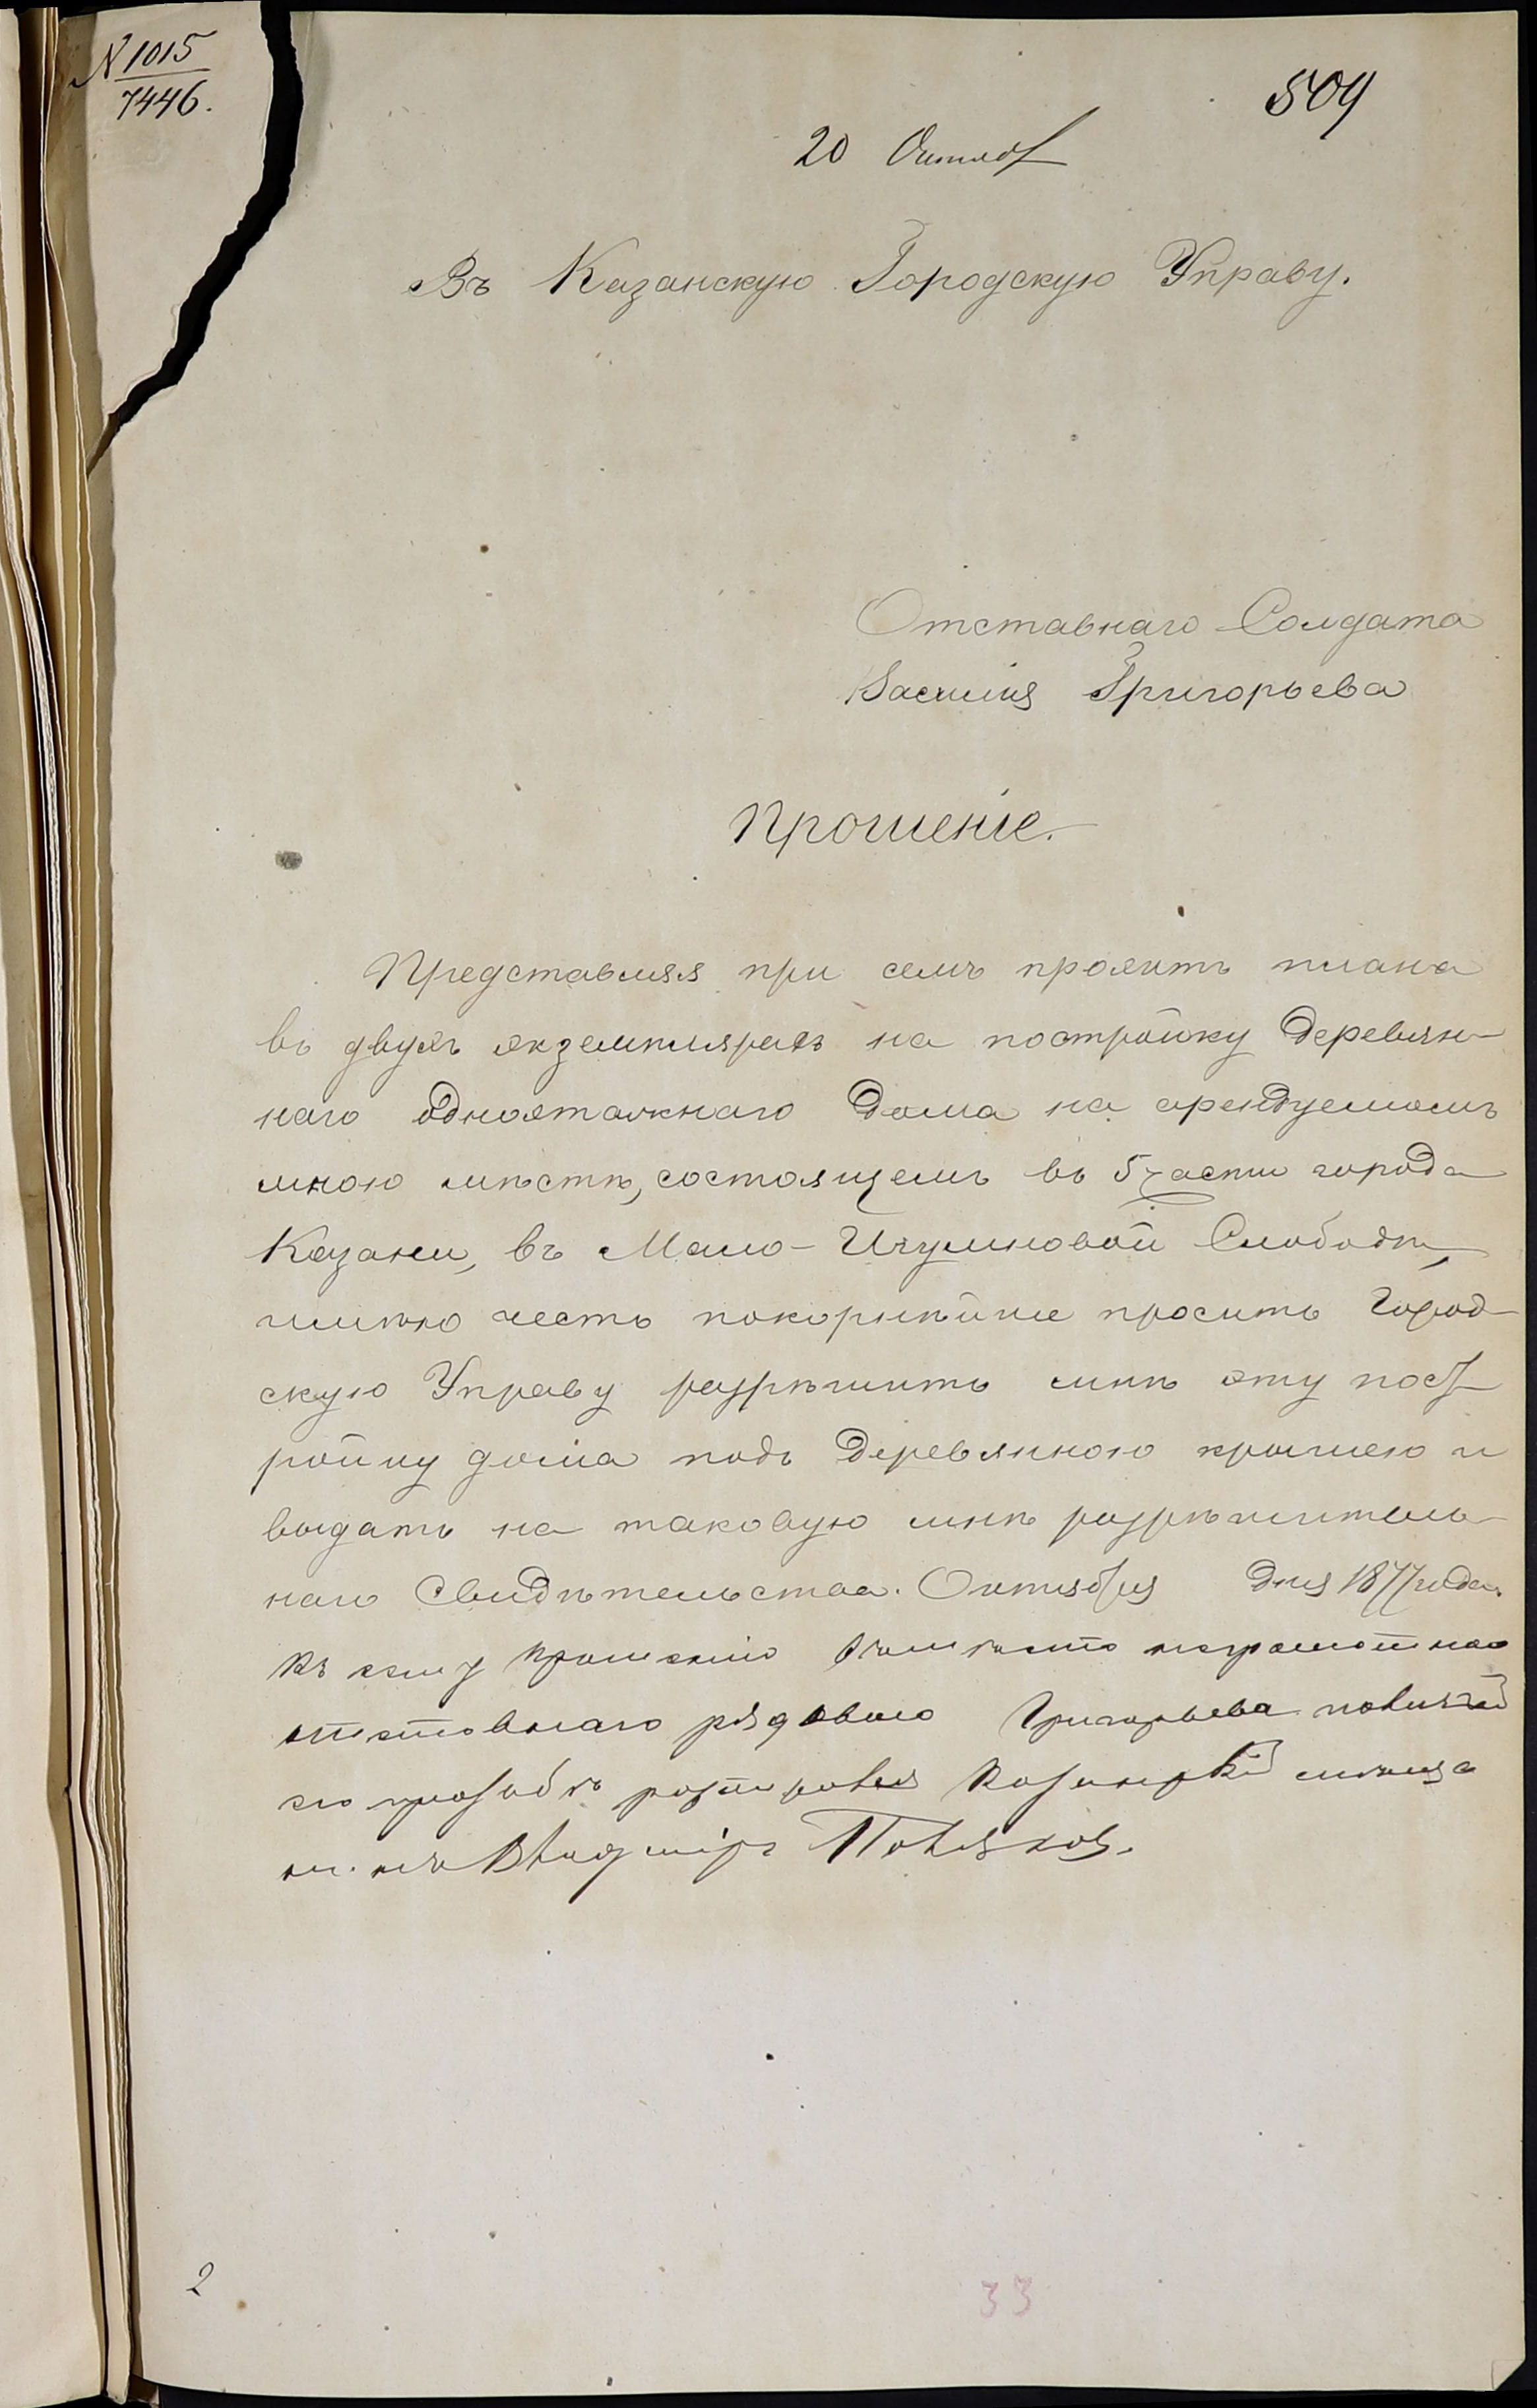 N 1015
7446.
509
20 Октяб
Въ Казанскую Городскую Управу.
Отставнаго Солдата
Василія Григорьева
Прошеніе.
Представляя при семъ проэктъ плана
въ двухъ экземплярахъ на постройку деревян-
наго одноэтажнаго дома на арендуемомъ
мною мѣстѣ, состоящемъ въ 5 части города
Казани, въ Мало-Игумновой Слободѣ,
имѣю честь покорнѣйше просить Город-
скую Управу разрѣшить мнѣ эту пост-
ройку дома подъ деревянною крышею и
выдать на таковую мнѣ разрѣшитель-
наго Свидѣтельства. Октября дня 1877 года.
Къ сему прошенію вмѣсто неграмотнаго
отставнаго рядоваго Григорьева по личной
его прозьбѣ росписался Казанский мѣщанинъ
Владиміръ Поляковъ.
2
33